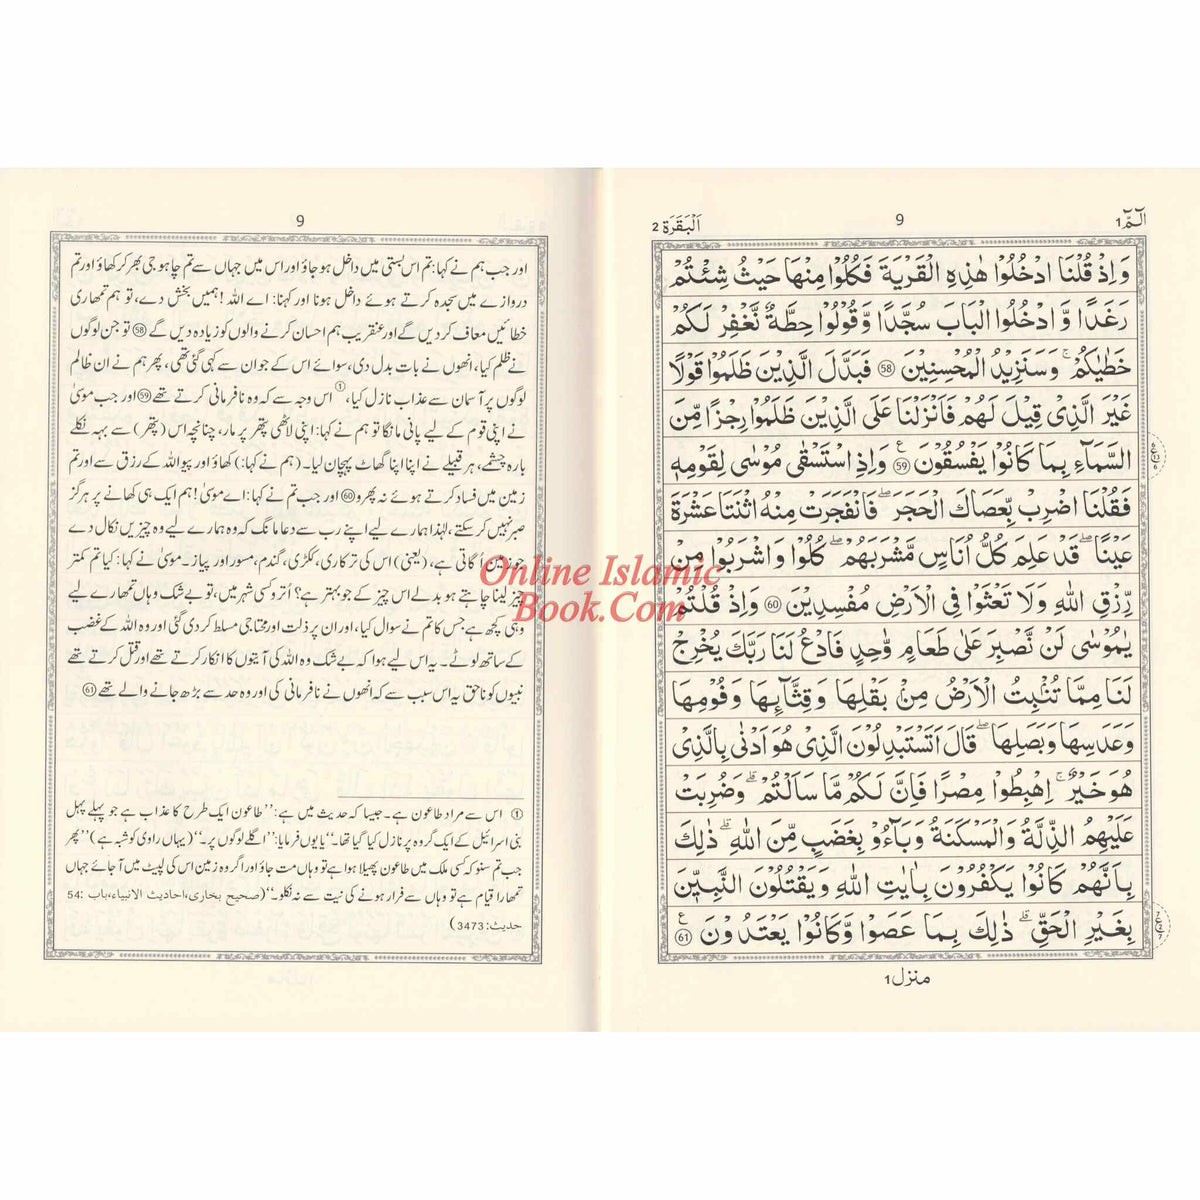 الٓمّٓ 1
9
اَلْبَقَرَة 2
وَاِذْ قُلْنَا ادْخُلُوْا هٰذِهِ الْقَرْيَةَ فَكُلُوْا مِنْهَا حَيْثُ شِئْتُمْ
رَغَدًا وَّادْخُلُوا الْبَابَ سُجَّدًا وَّقُوْلُوْا حِطَّةٌ نَّغْفِرْ لَكُمْ
خَطٰيٰكُمْ ؕ وَسَنَزِيْدُ الْمُحْسِنِيْنَ 58 فَبَدَّلَ الَّذِيْنَ ظَلَمُوْا قَوْلًا
غَيْرَ الَّذِيْ قِيْلَ لَهُمْ فَاَنْزَلْنَا عَلَى الَّذِيْنَ ظَلَمُوْا رِجْزًا مِّنَ
السَّمَآءِ بِمَا كَانُوْا يَفْسُقُوْنَ 59 ع وَاِذِ اسْتَسْقٰى مُوْسٰى لِقَوْمِهٖ
فَقُلْنَا اضْرِبْ بِّعَصَاكَ الْحَجَرَ ؕ فَانْفَجَرَتْ مِنْهُ اثْنَتَا عَشْرَةَ
عَيْنًا ؕ قَدْ عَلِمَ كُلُّ اُنَاسٍ مَّشْرَبَهُمْ ؕ كُلُوْا وَاشْرَبُوْا مِنْ
رِّزْقِ اللّٰهِ وَلَا تَعْثَوْا فِى الْاَرْضِ مُفْسِدِيْنَ 60 وَاِذْ قُلْتُمْ
يٰمُوْسٰى لَنْ نَّصْبِرَ عَلٰى طَعَامٍ وَّاحِدٍ فَادْعُ لَنَا رَبَّكَ يُخْرِجْ
لَنَا مِمَّا تُنْۢبِتُ الْاَرْضُ مِنْۢ بَقْلِهَا وَقِثَّآئِهَا وَفُوْمِهَا
وَعَدَسِهَا وَبَصَلِهَا ؕ قَالَ اَتَسْتَبْدِلُوْنَ الَّذِيْ هُوَ اَدْنٰى بِالَّذِيْ
هُوَ خَيْرٌ ؕ اِهْبِطُوْا مِصْرًا فَاِنَّ لَكُمْ مَّا سَاَلْتُمْ ؕ وَضُرِبَتْ
عَلَيْهِمُ الذِّلَّةُ وَالْمَسْكَنَةُ وَبَآءُوْ بِغَضَبٍ مِّنَ اللّٰهِ ؕ ذٰلِكَ
بِاَنَّهُمْ كَانُوْا يَكْفُرُوْنَ بِاٰيٰتِ اللّٰهِ وَيَقْتُلُوْنَ النَّبِيّٖنَ
بِغَيْرِ الْحَقِّ ؕ ذٰلِكَ بِمَا عَصَوْا وَّكَانُوْا يَعْتَدُوْنَ 61 ع
منزل 1
9
اور جب ہم نے کہا: تم اس بستی میں داخل ہو جاؤ اور اس میں جہاں سے تم چاہو جی بھر کر کھاؤ اور تم
دروازے میں سجدہ کرتے ہوئے داخل ہونا اور کہنا: اے اللہ! ہمیں بخش دے، تو ہم تمھاری
خطائیں معاف کر دیں گے اور عنقریب ہم احسان کرنے والوں کو زیادہ دیں گے 58 تو جن لوگوں
نے ظلم کیا، انھوں نے بات بدل دی، سوائے اس کے جو ان سے کہی گئی تھی، پھر ہم نے ان ظالم
لوگوں پر آسمان سے عذاب نازل کیا،① اس وجہ سے کہ وہ نافرمانی کرتے تھے 59 اور جب موسیٰ
نے اپنی قوم کے لیے پانی مانگا تو ہم نے کہا: اپنی لاٹھی پتھر پر مار، چنانچہ اس (پتھر) سے بہہ نکلے
بارہ چشمے، ہر قبیلے نے اپنا اپنا گھاٹ پہچان لیا۔ (ہم نے کہا:) کھاؤ اور پیو اللہ کے رزق سے اور تم
زمین میں فساد کرتے ہوئے نہ پھرو 60 اور جب تم نے کہا: اے موسیٰ! ہم ایک ہی کھانے پر ہرگز
صبر نہیں کر سکتے، لہٰذا ہمارے لیے اپنے رب سے دعا مانگ کہ وہ ہمارے لیے وہ چیزیں نکال دے
جو زمین اُگاتی ہے، (یعنی) اس کی ترکاری، ککڑی، گندم، مسور اور پیاز۔ موسیٰ نے کہا: کیا تم کمتر
چیز لینا چاہتے ہو بدلے اس چیز کے جو بہتر ہے؟ اُترو کسی شہر میں، تو بے شک وہاں تمھارے لیے
وہی کچھ ہے جس کا تم نے سوال کیا، اور ان پر ذلت اور محتاجی مسلط کر دی گئی اور وہ اللہ کے غضب
کے ساتھ لوٹے۔ یہ اس لیے ہوا کہ بے شک وہ اللہ کی آیتوں کا انکار کرتے تھے اور قتل کرتے تھے
نبیوں کو ناحق یہ اس سبب سے کہ انھوں نے نافرمانی کی اور وہ حد سے بڑھ جانے والے تھے 61
① اس سے مراد طاعون ہے۔ جیسا کہ حدیث میں ہے: ”طاعون ایک طرح کا عذاب ہے جو پہلے پہل
بنی اسرائیل کے ایک گروہ پر نازل کیا گیا تھا۔“ یا یوں فرمایا: ”اگلے لوگوں پر۔“ (یہاں راوی کو شبہ ہے) ”پھر
جب تم سنو کہ کسی ملک میں طاعون پھیلا ہوا ہے تو وہاں مت جاؤ اور اگر وہ زمین اس کی لپیٹ میں آ جائے جہاں
تمھارا قیام ہے تو وہاں سے فرار ہونے کی نیت سے نہ نکلو۔“ (صحیح بخاری، احادیث الانبیاء، باب: 54
حدیث: 3473)
Online Islamic
Book.Com